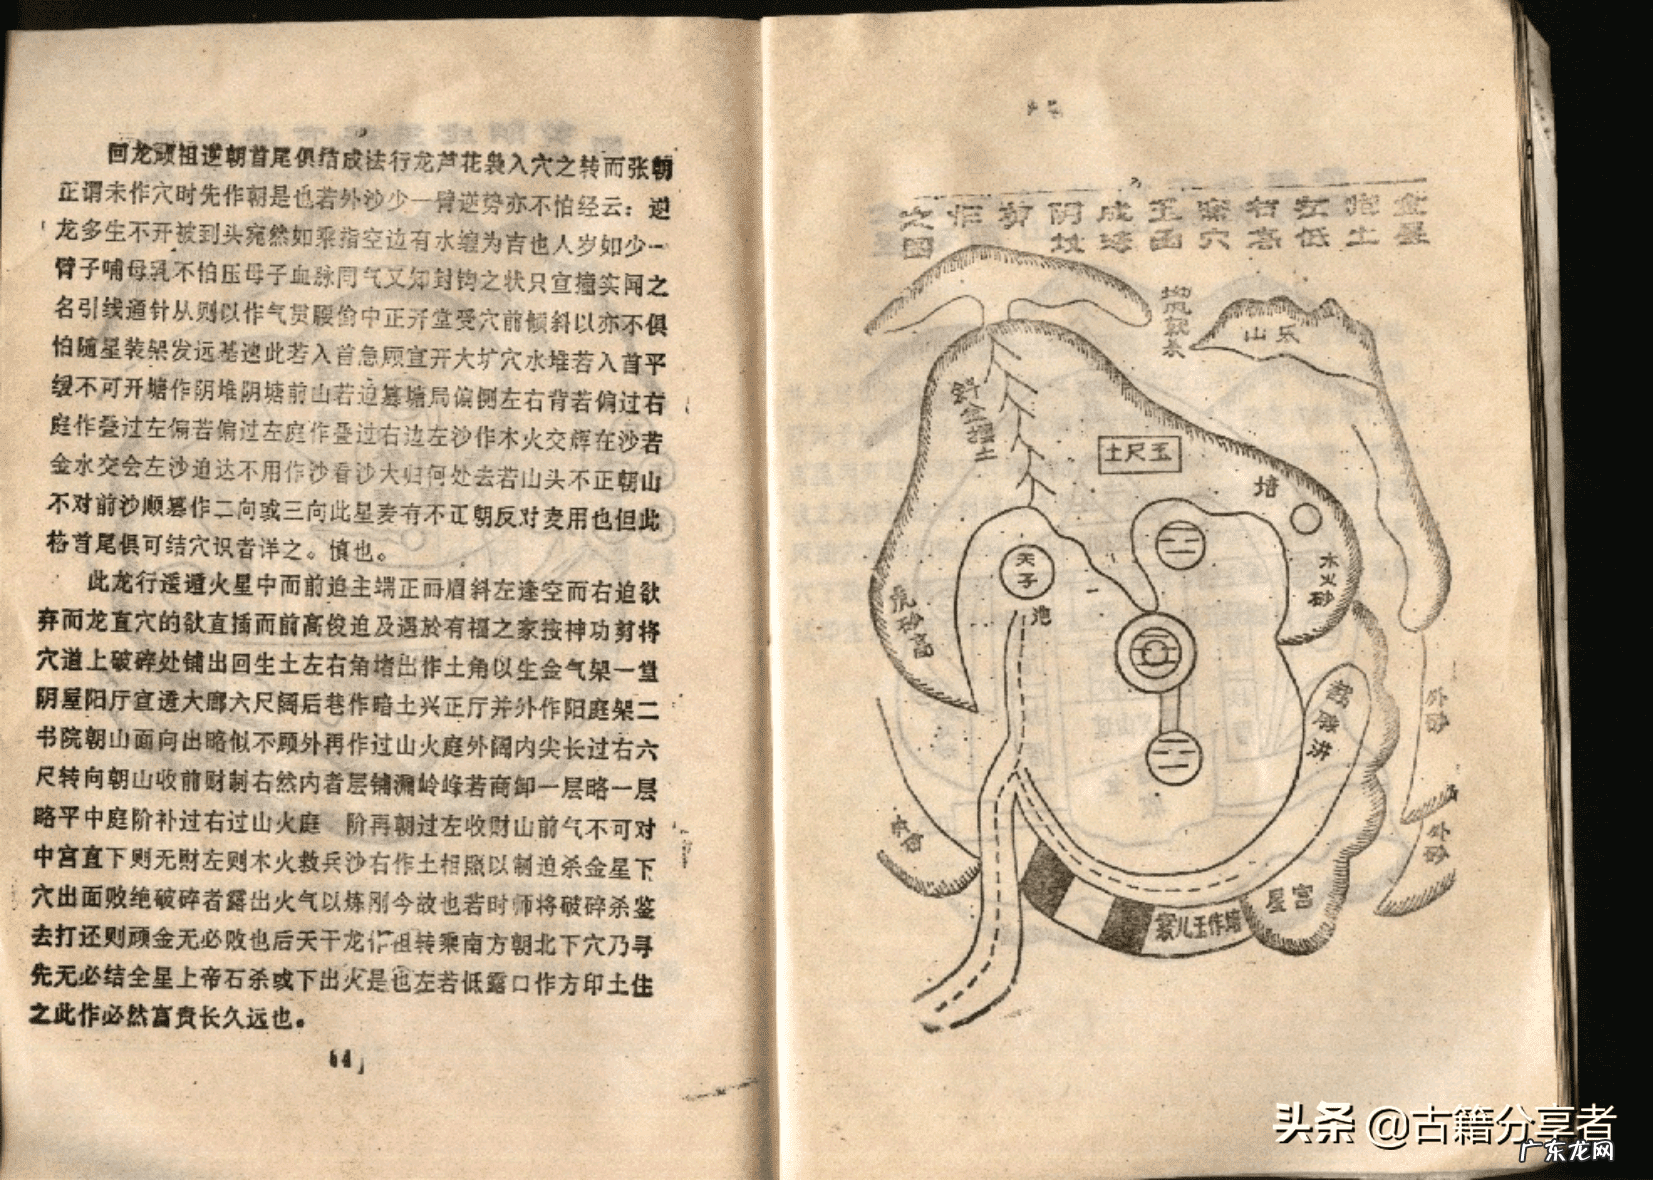 回龙顾祖逆朝首尾俱结成法行龙芦花袅入穴之转而张朝
正谓未作穴时先作朝是也若外沙少一臂逆势亦不怕经云：逆
龙多生不开被到头宛然如乘指空边有水缠为吉也人岁如少一
臂子哺母乳不怕压母子血脉同气又如封钩之状只宜撞实闻之
名引线通针从则以作气贯腰偷中正开堂受穴前倾斜以亦不俱
怕随星装架发远基速此若入首急顾宜开大圹穴水堆若入首平
缓不可开塘作阴堆阴塘前山若迫墓塘局偏侧左右背若偏过右
庭作叠过左偏若偏过左庭作叠过右边左沙作木火交辉在沙若
金水交会左沙迫达不用作沙看沙大归何处去若山头不正朝山
不对前沙顺墓作二向或三向此星麦有不正朝反对麦用也但此
格首尾俱可结穴识者详之。慎也。
此龙行逶遁火星中而前迫主端正而眉斜左逢空而右迫欲
弃而龙直穴的欲直插而前高俊迫及遇於有福之家按神功剪将
穴道上破碎处铺出回生土左右角堵出作土角以生金气架一堂
阴屋阳厅宜透大廊六尺阔后巷作暗土兴正厅并外作阳庭架二
书院朝山面向出略似不顾外再作过山火庭外阔内尖长过右六
尺转向朝山收前财制右然内者层铺濑岭峰若商卸一层略一层
略平中庭阶补过右过山火庭 阶再朝过左收财山前气不可对
中宫直下则无财左则木火救兵沙右作土相照以制迫杀金星下
穴出面败绝破碎者露出火气以炼刚今故也若时师将破碎杀鉴
去打还则顽金无必败也后天干龙作祖转乘南方朝北下穴乃寻
先无必结全星上帝石杀或下出火是也左若低露口作方印土住
之此作必然富贵长久远也。
64
金星
抱土
左低
右高
穴
玉函
成
阴坟
剪
作
之图
山乐
斜金埋土
土尺玉
培
天子
池
木火砂
虎砂高
外砂
外砂
星宫
案儿玉作培
头条 @古籍分享者
广东龙网